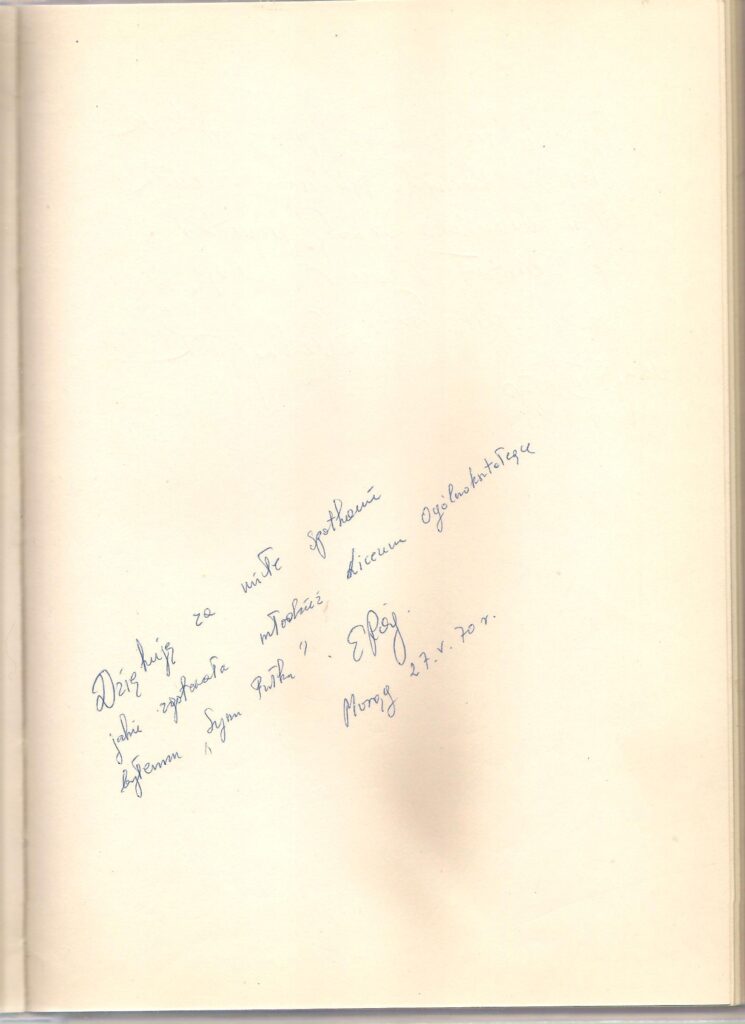 Dziękuję za miłe spotkanie
jakie zgotowała młodzież Liceum Ogólnokształcące
byłemu „Synu Pułku".
Morąg 27.V.70 r.